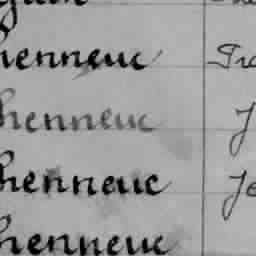 henneuc Fra
henneuc J
henneuc Je
henneuc